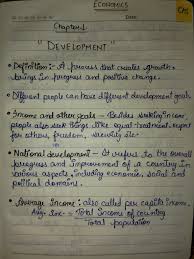 ECONOMICS
Date:
Chapter-1
"DEVELOPMENT"
• Definition:- A process that creates growth,
brings in progress and positive change.
• Different people can have different development goals
• Income and other goals - Besides seeking income,
people also seek things like equal treatment, respect
for others, freedom, security etc
• National development - It refers to the overall
progress and improvement of a country in
various aspects, including economic, social and
political domains.
• Average Income: also called per capita income.
Avg. Inc - Total Income of country
Total population